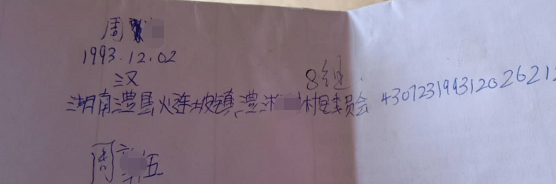 周
1993.12.02
汉
8组
湖南澧县火连坡镇澧沭村居委会 430723199312026212
周六五